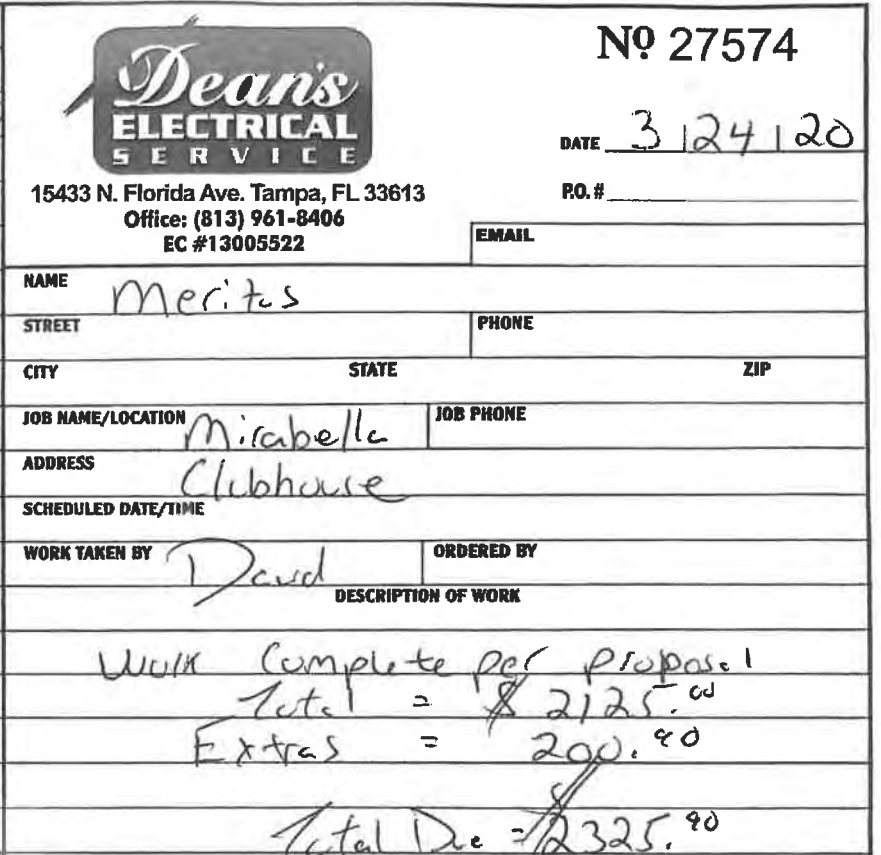 Dean's
ELECTRICAL
SERVICE
Nº 27574
DATE 3 | 24 | 20
15433 N. Florida Ave. Tampa, FL 33613
P.O. #
Office: (813) 961-8406
EC #13005522
EMAIL
NAME Meritus
STREET PHONE
CITY STATE ZIP
JOB NAME/LOCATION Mirabella JOB PHONE
ADDRESS Clubhouse
SCHEDULED DATE/TIME
WORK TAKEN BY David ORDERED BY
DESCRIPTION OF WORK
Work Complete per proposal
Total = $ 2125.00
Extras = 200.90
Total Due = $2325.90